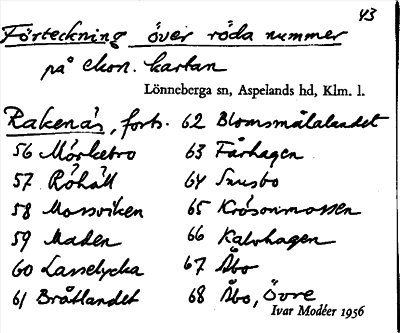 43
Förteckning över röda nummer
på ekon. kartan
Lönneberga sn, Aspelands hd, Klm. l.
Rakenäs, forts.
56 Mörkebo
57 Röhäll
58 Mossviken
59 Maden
60 Lasselycka
61 Bråtlandet
62 Blomsmålalandet
63 Fårhagen
64 Snusbo
65 Krösonmossen
66 Kalvhagen
67 Åbo
68 Åbo, övre
Ivar Modéer 1956